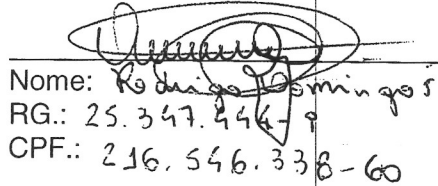 Nome: Rodrigo Domingos
RG.: 25.347.444-9
CPF.: 216.546.338-60